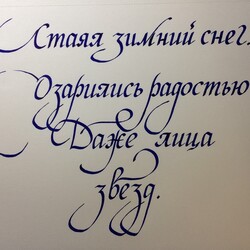 Стаял зимний снег.
Озарились радостью
Даже лица
звезд.